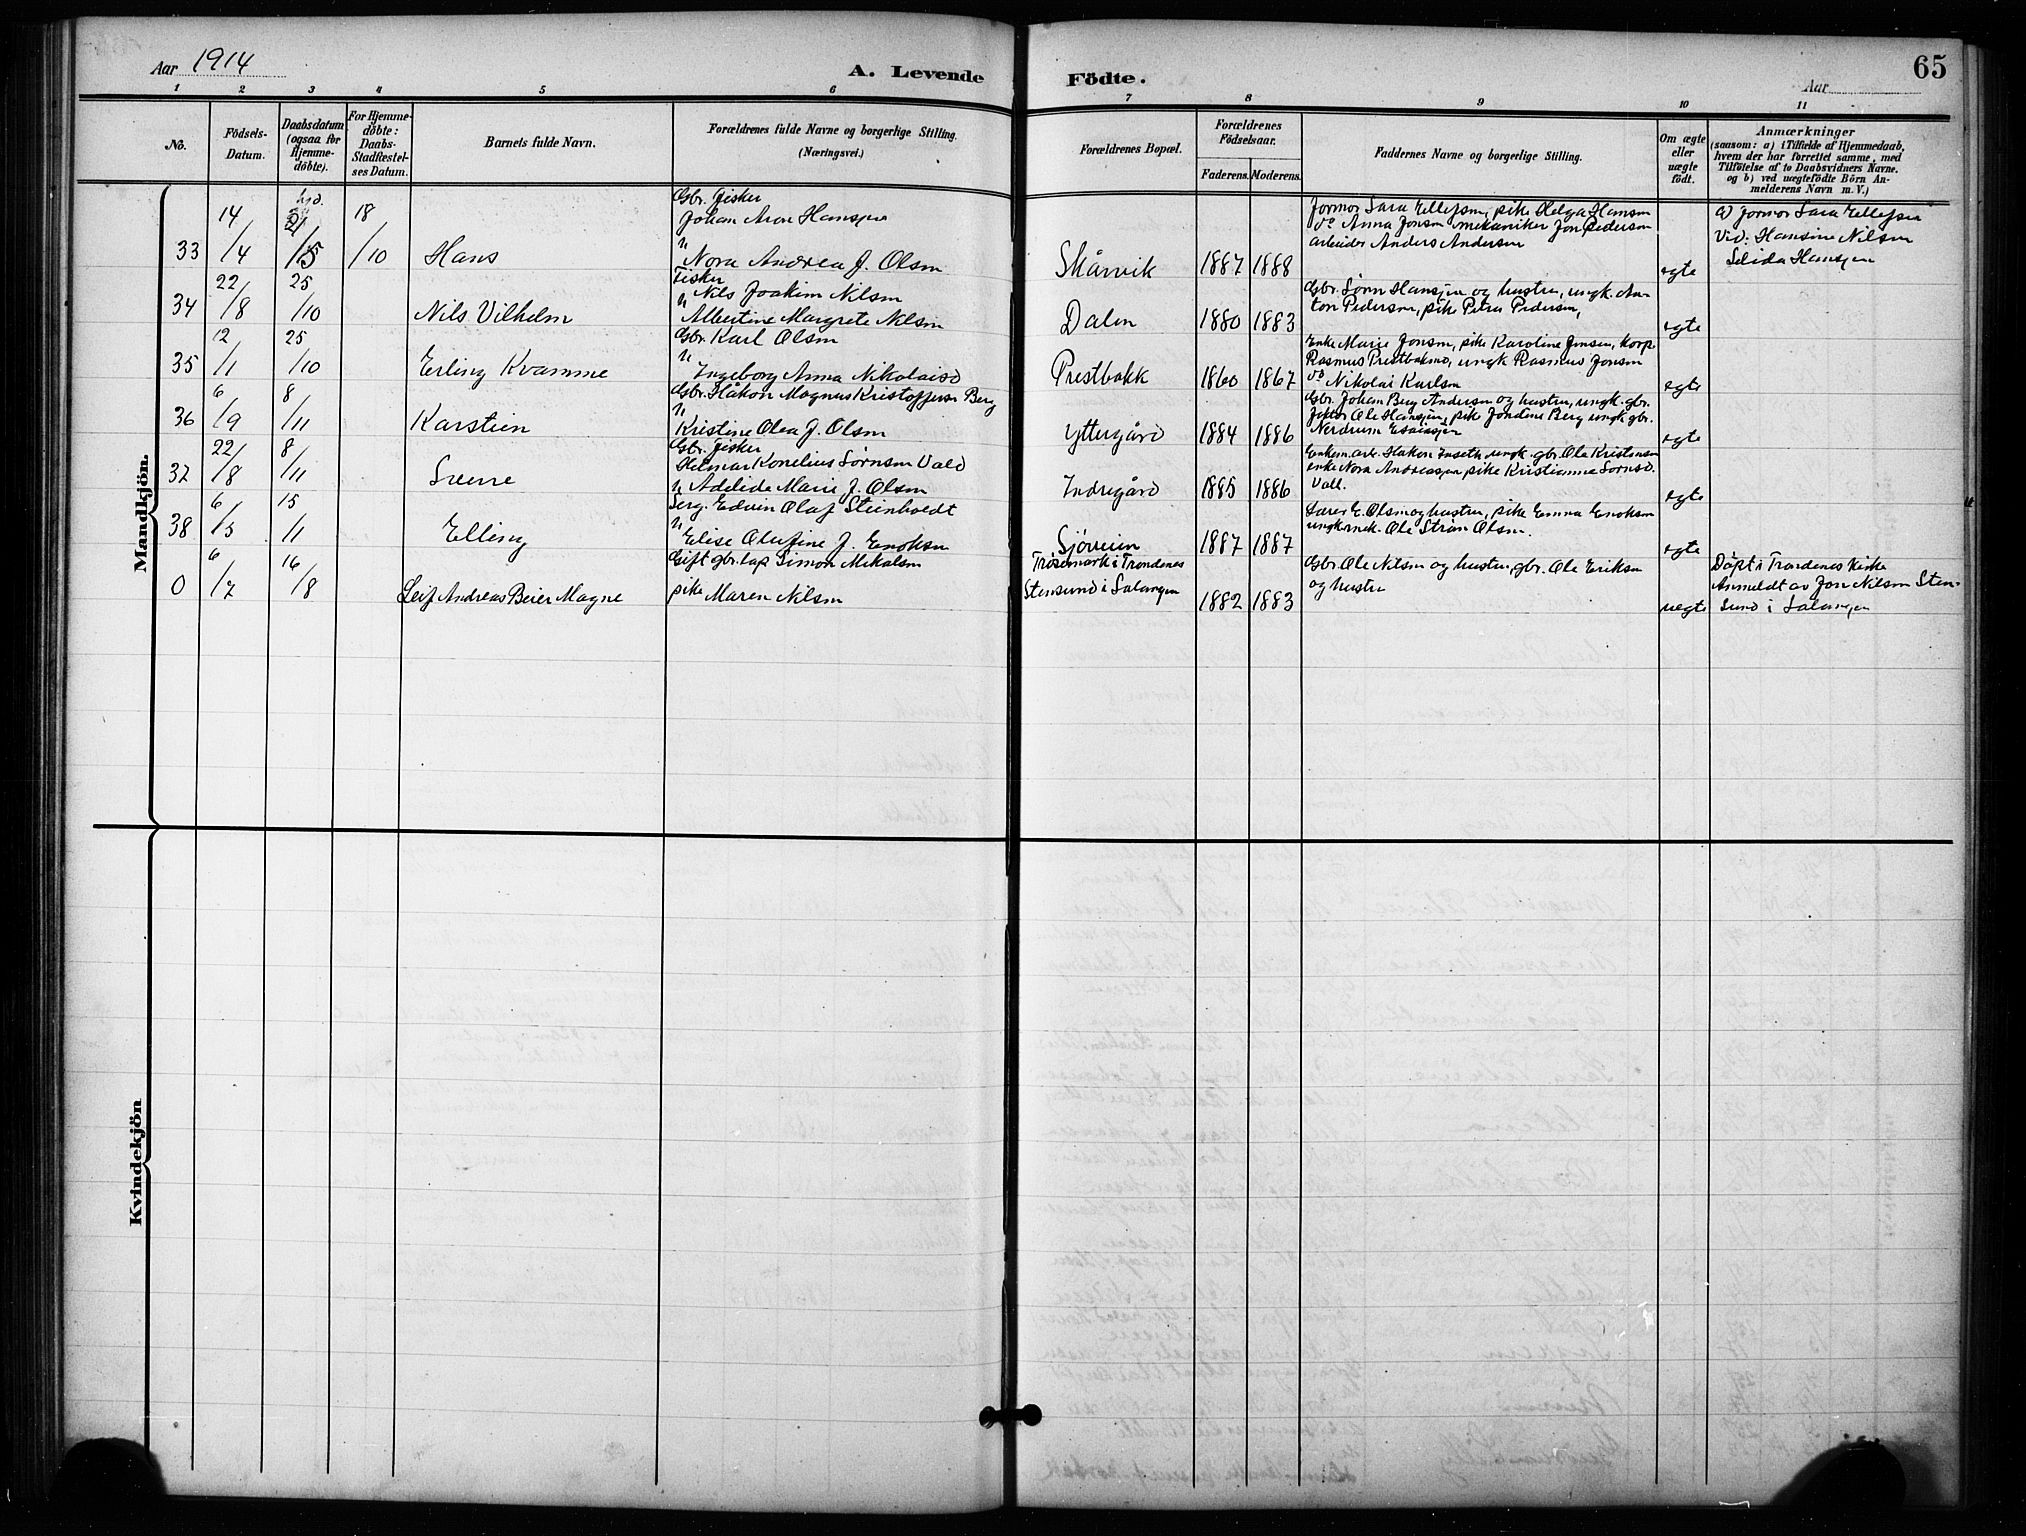 Aar 1914
A. Levende
Födte.
Aar
65
1 2 3 4 5 6 7 8 9 10 11
No.
Födsels-
Datum.
Daabsdatum
(ogsaa for
Hjemme-
döbte).
For Hjemme-
döbte:
Daabs-
Stadfæstel-
ses Datum.
Barnets fulde Navn.
Forældrenes fulde Navne og borgerlige Stilling.
(Næringsvei.)
Forældrenes Bopæl.
Forældrenes
Födselsaar.
Faderens. Moderens.
Faddernes Navne og borgerlige Stilling.
Om ægte
eller
uægte
födt.
Anmærkninger
(saasom: a) i Tilfælde af Hjemmedaab,
hvem der har forrettet samme, med
Tilföielse af to Daabsvidners Navne.
og b) ved uægtefödte Börn An-
melderens Navn m. V.)
Mandkjön.
33 14/4 hjd. 21/5 18/10 Hans
Gbr. fisker
Johan Aron Hansen
Nora Andrea f. Olsen
Skårvik 1887 1888
Jormor Sara Ellefsen, pike Helga Hansen
do Anna Jonsen mekaniker Jon Pedersen
arbeider Anders Andersen
egte
a) Jormor Sara Ellefsen
Vid: Hansine Nilsen
Selida Hansen
34 22/8 25/10 Nils Vilhelm
Fisker
Nils Joakim Nilsen
Albertine Margrete Nilsen
Dalen 1880 1883
Gbr. Sørn Hansen og hustru, ungk. An-
ton Pedersen, pike Petra Pedersen,
egte
35 12/1 25/10 Erling Kvamme
Gbr. Karl Olsen
Ingeborg Anna Nikolaisd
Prestbakk 1860 1867
Enke Marie Jonsen, pike Karoline Jensen, korp.
Rasmus Prestbakmo, ungk Rasmus Jonsen
do Nikolai Karlsen
egte
36 6/9 8/11 Karstein
Gbr. Håkon Magnus Kristoffersen Berg
Kristine Olea f. Olsen
Yttergård 1884 1886
Gbr. Johan Berg Andersen og hustru, ungk. gbr.
fisker Ole Hansen, pike Jordine Berg ungk gbr.
Nerdrum Esaiassen
egte
37 22/8 8/11 Sverre
Gbr. fisker
Helmar Kornelius Sørnsen Vald
Adelida Marie f. Olsen
Indregård 1885 1886
Enkem. arb. Håkon Inseth ungk. gbr. Ole Kristensen
enke Nora Andreassen pike Kristianna Sørnsd.
Vall.
egte
38 6/5 15/11 Elling
Serg. Edvin Olaf Steinholdt
Elise Olufine f. Enoksen
Sjøveien 1887 1887
Lærer E. Olsen og hustru, pike Emma Enoksen
ungk. mek. Ole Strøm Olsen.
egte
0 6/7 16/8 Leif Andreas Beier Magne
Gift gbr. lap Simon Mikalsen
pike Maren Nilsen
Trøsemark i Trondenes
Stensund i Salangen
1882 1883
Gbr. Ole Nilsen og hustru, gbr. Ole Eriksen
og hustru
uegte
Døpt i Trondenes kirke
Anmeldt av Jon Nilsen Sten-
sund i Salangen
Kvindekjön